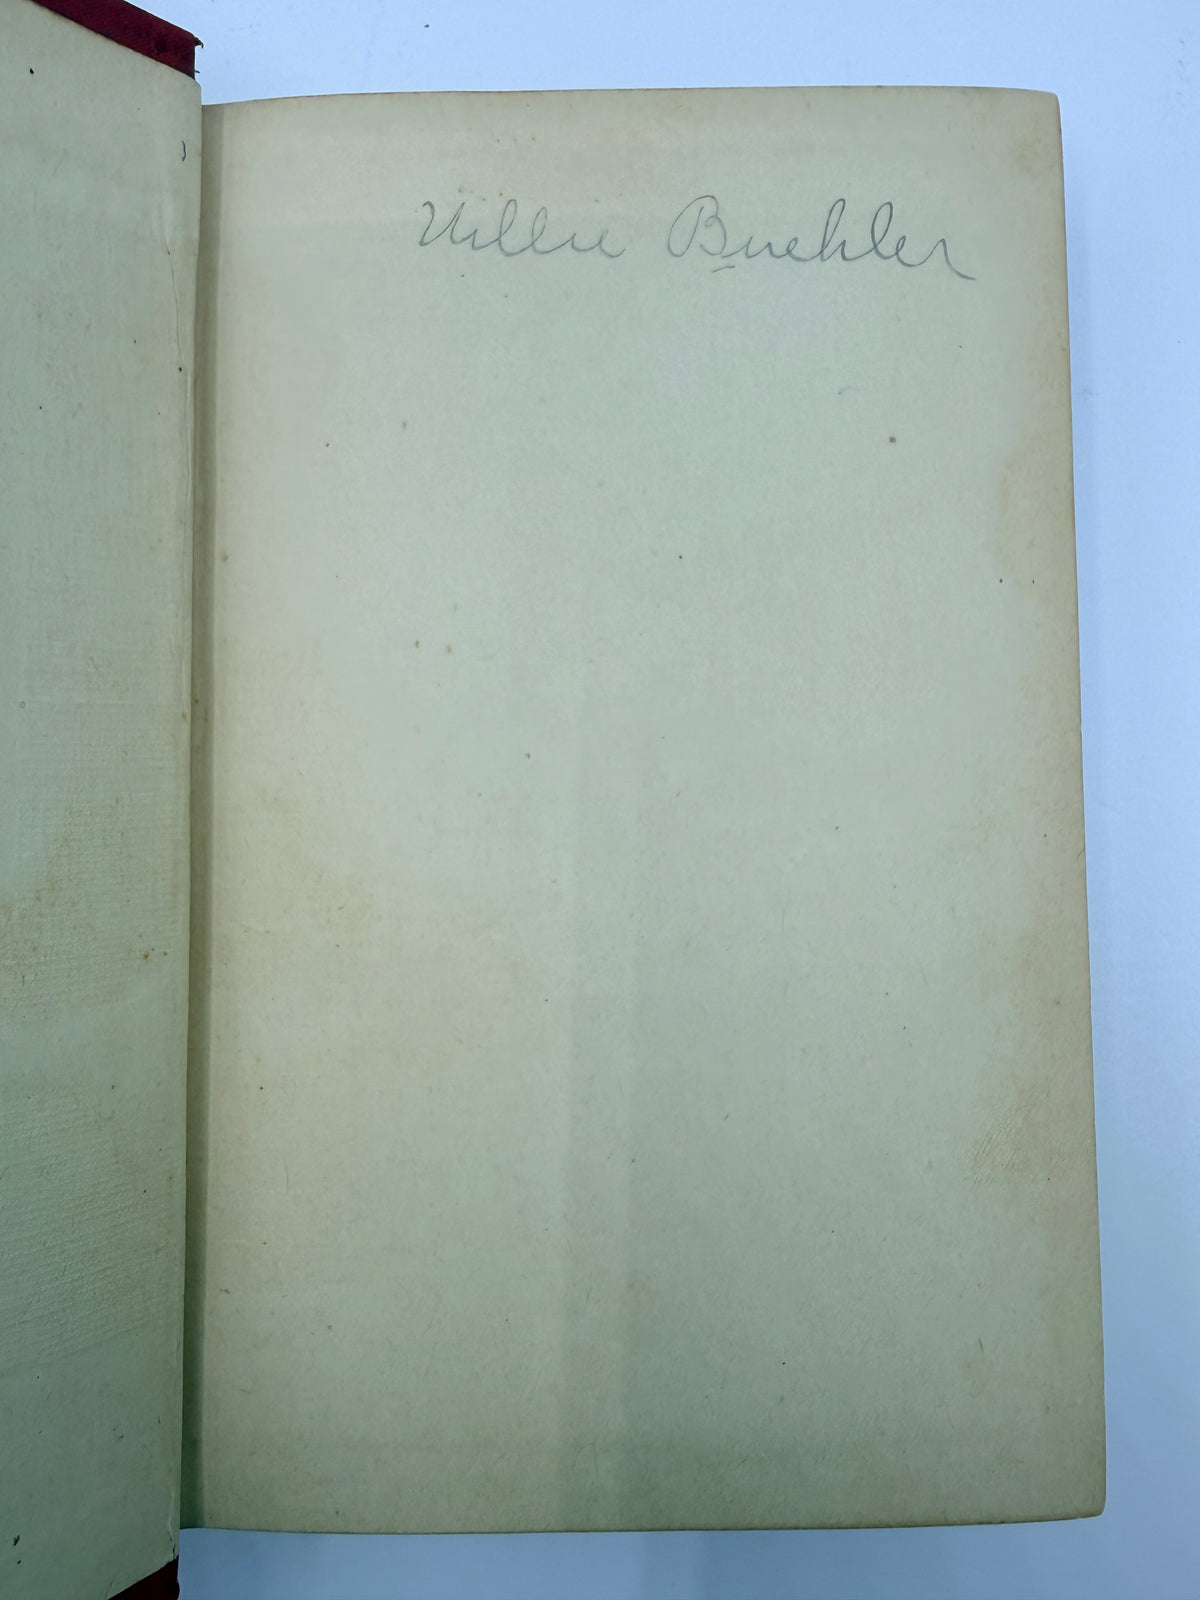 Willie Buehler